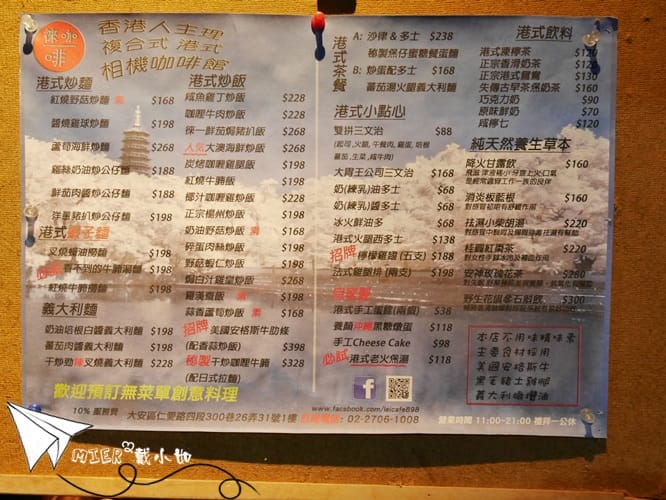 徠咖啡
香港人主理
複合式 港式
相機咖啡館
港式炒麵
紅燒野菇炒麵 素 $168
醬燒雞球炒麵 $168
蘆荀海鮮炒麵 $268
雞絲奶油炒公仔麵 $188
鮮茄肉醬炒公仔麵 $188
洋蔥豬扒炒公仔麵 $198
港式
叉燒蠔油撈麵 $198
看不到的牛腩湯麵 $198
紅燒牛腩撈麵 $198
義大利麵
奶油培根白醬義大利麵 $198
蕃茄肉醬義大利麵 $198
干炒勁辣叉燒義大利麵 $228
港式炒飯
鹹魚雞丁炒飯 $228
咖哩牛肉炒飯 $228
徠一鮮茄焗豬扒飯 $268
人氣大澳海鮮炒飯 $268
炭烤咖哩雞腿飯 $198
紅燒牛腩飯 $198
椰汁咖哩雞炒飯 $228
正宗楊州炒飯 $198
奶油野菇炒飯 素 $168
碎蛋肉絲炒飯 $198
野菇蝦仁炒飯 $198
焗白汁雞皇炒飯 $268
羅漢齋飯 素 $198
蒜香蘆筍炒飯 素 $168
招牌 美國安格斯牛肋條
(配香蒜炒飯) $398
秘製干炒咖哩牛腩 $328
(配日式拉麵)
歡迎預訂無菜單創意料理
港式茶餐
A: 沙律 & 多士 $238
秘製焦仔蜜糖餐蛋麵
B: 炒蛋配多士 $168
蕃茄濃湯火腿義大利麵
港式小點心
雙拼三文治 $88
(起司,火腿,午餐肉,雞蛋,培根
蕃茄,生菜,咸牛肉)
大胃王公司三文治 $168
奶(煉乳)油多士 $68
奶(煉乳)醬多士 $68
冰火鮮油多 $68
港式火腿西多士 $138
招牌 檸檬雞翅 (五支) $188
法式雞腿烤 (兩支) $198
港式手工蛋餅(兩個) $38
養顏沖繩黑糖燉蛋 $118
手工Cheese Cake $98
必試 港式老火煲湯 $118
港式飲料
港式凍檸茶 $120
正宗香滑奶茶 $120
正宗港式鴛鴦 $130
失傳古早茶煲奶茶 $160
巧克力奶 $90
原味鮮奶 $70
咸檸七 $120
純天然養生草本
降火甘露飲 $160
消炎板藍根 $160
祛濕小柴胡湯 $220
桂圓紅棗茶 $220
安神玫瑰花茶 $280
野生花旗參石斛飲 $300
本店不用味精味素
主要食材採用
美國安格斯牛
黑毛豬土雞腿
義大利橄欖油
www.facebook.com/leicafe898
10% 服務費 大安區仁愛路四段300巷26弄31號1樓 訂位電話: 02-2706-1008
營業時間 11:00~21:00 禮拜一公休
MIER 戴小如